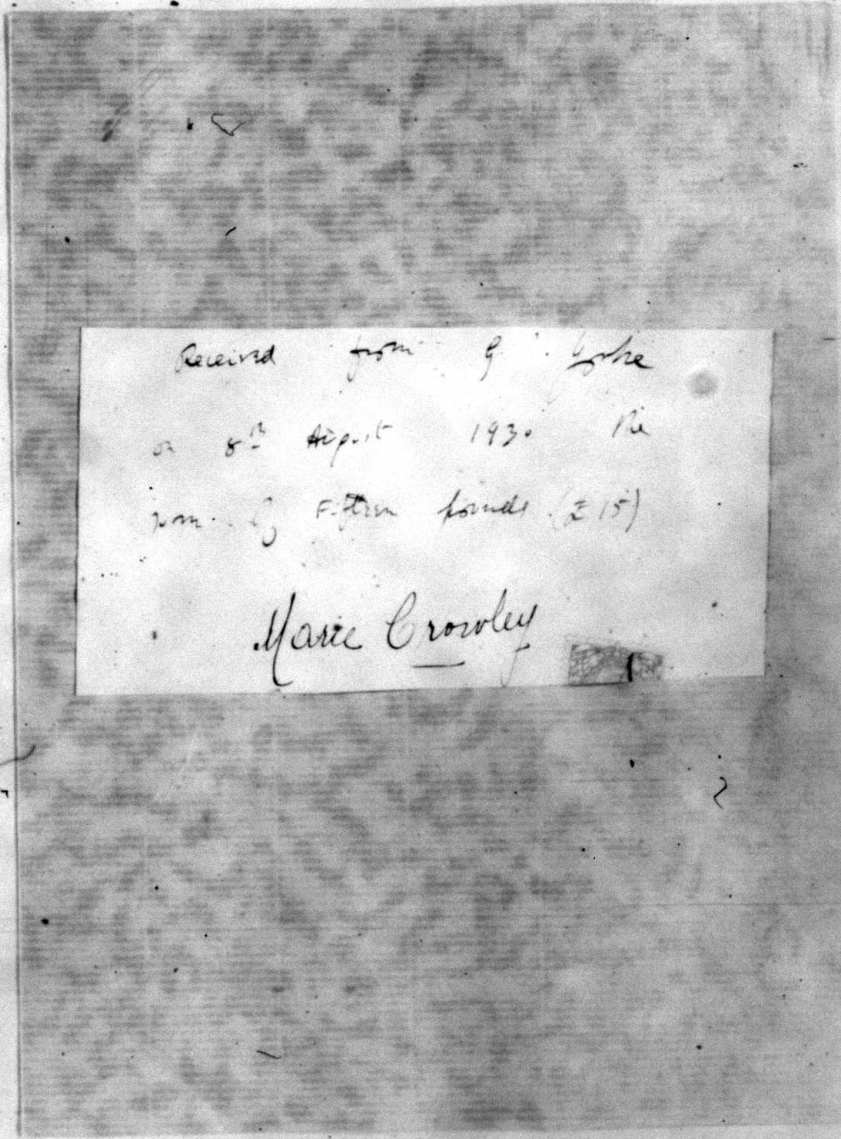 Received from G. Yorke
on 8th August 1930 the
sum of Fifteen pounds (£15)
Marie Crowley